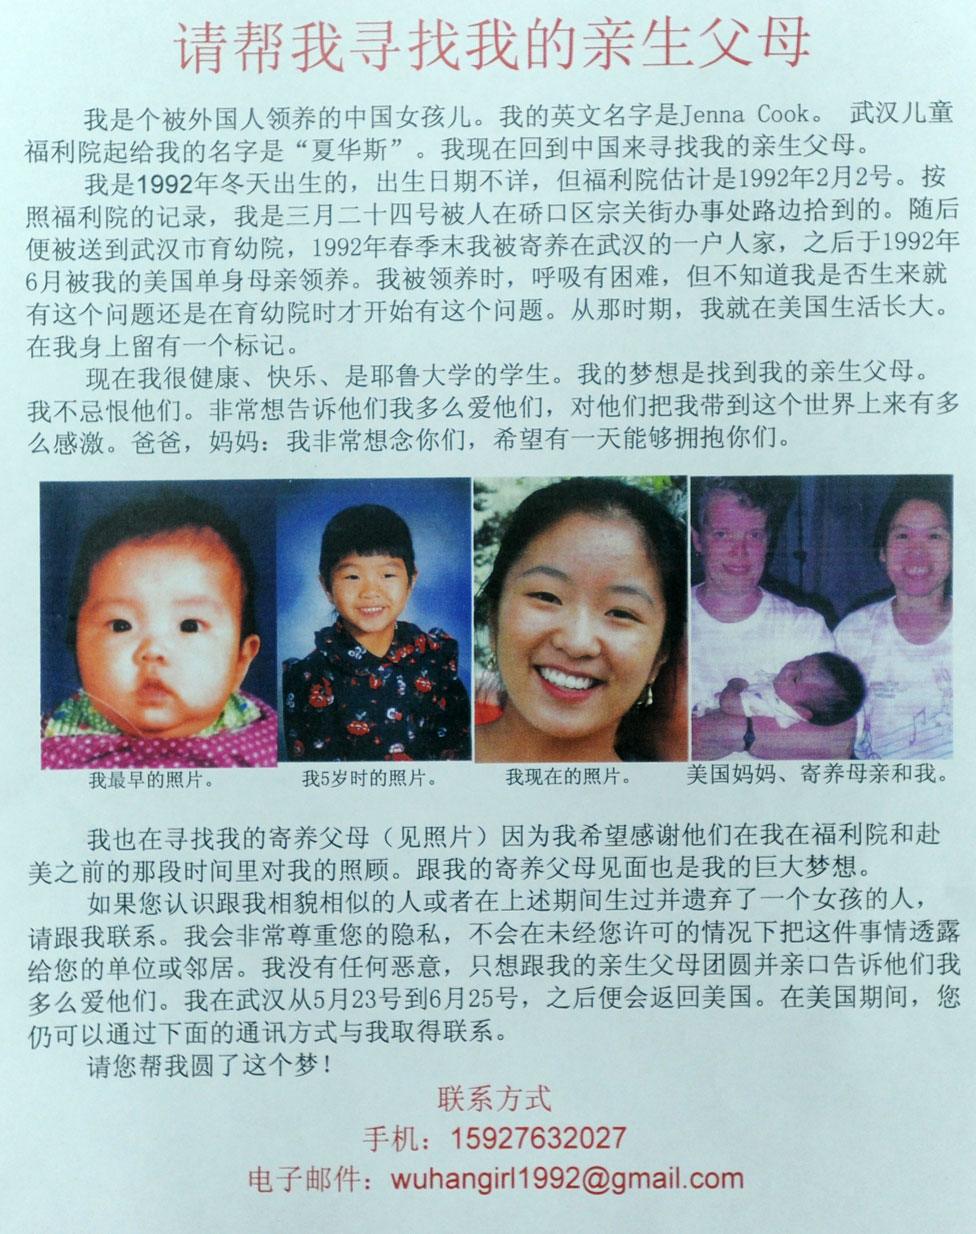 请帮我寻找我的亲生父母
我是个被外国人领养的中国女孩儿。我的英文名字是Jenna Cook。 武汉儿童
福利院起给我的名字是“夏华斯”。我现在回到中国来寻找我的亲生父母。
我是1992年冬天出生的，出生日期不详，但福利院估计是1992年2月2号。按
照福利院的记录，我是三月二十四号被人在硚口区宗关街办事处路边拾到的。随后
便被送到武汉市育幼院，1992年春季末我被寄养在武汉的一户人家，之后于1992年
6月被我的美国单身母亲领养。我被领养时，呼吸有困难，但不知道我是否生来就
有这个问题还是在育幼院时才开始有这个问题。从那时期，我就在美国生活长大。
在我身上留有一个标记。
现在我很健康、快乐、是耶鲁大学的学生。我的梦想是找到我的亲生父母。
我不忌恨他们。非常想告诉他们我多么爱他们，对他们把我带到这个世界上来有多
么感激。爸爸，妈妈：我非常想念你们，希望有一天能够拥抱你们。
我最早的照片。 我5岁时的照片。 我现在的照片。 美国妈妈、寄养母亲和我。
我也在寻找我的寄养父母（见照片）因为我希望感谢他们在我在福利院和赴
美之前的那段时间里对我的照顾。跟我的寄养父母见面也是我的巨大梦想。
如果您认识跟我相貌相似的人或者在上述期间生过并遗弃了一个女孩的人，
请跟我联系。我会非常尊重您的隐私，不会在未经您许可的情况下把这件事情透露
给您的单位或邻居。我没有任何恶意，只想跟我的亲生父母团圆并亲口告诉他们我
多么爱他们。我在武汉从5月23号到6月25号，之后便会返回美国。在美国期间，您
仍可以通过下面的通讯方式与我取得联系。
请您帮我圆了这个梦！
联系方式
手机：15927632027
电子邮件：wuhangirl1992@gmail.com